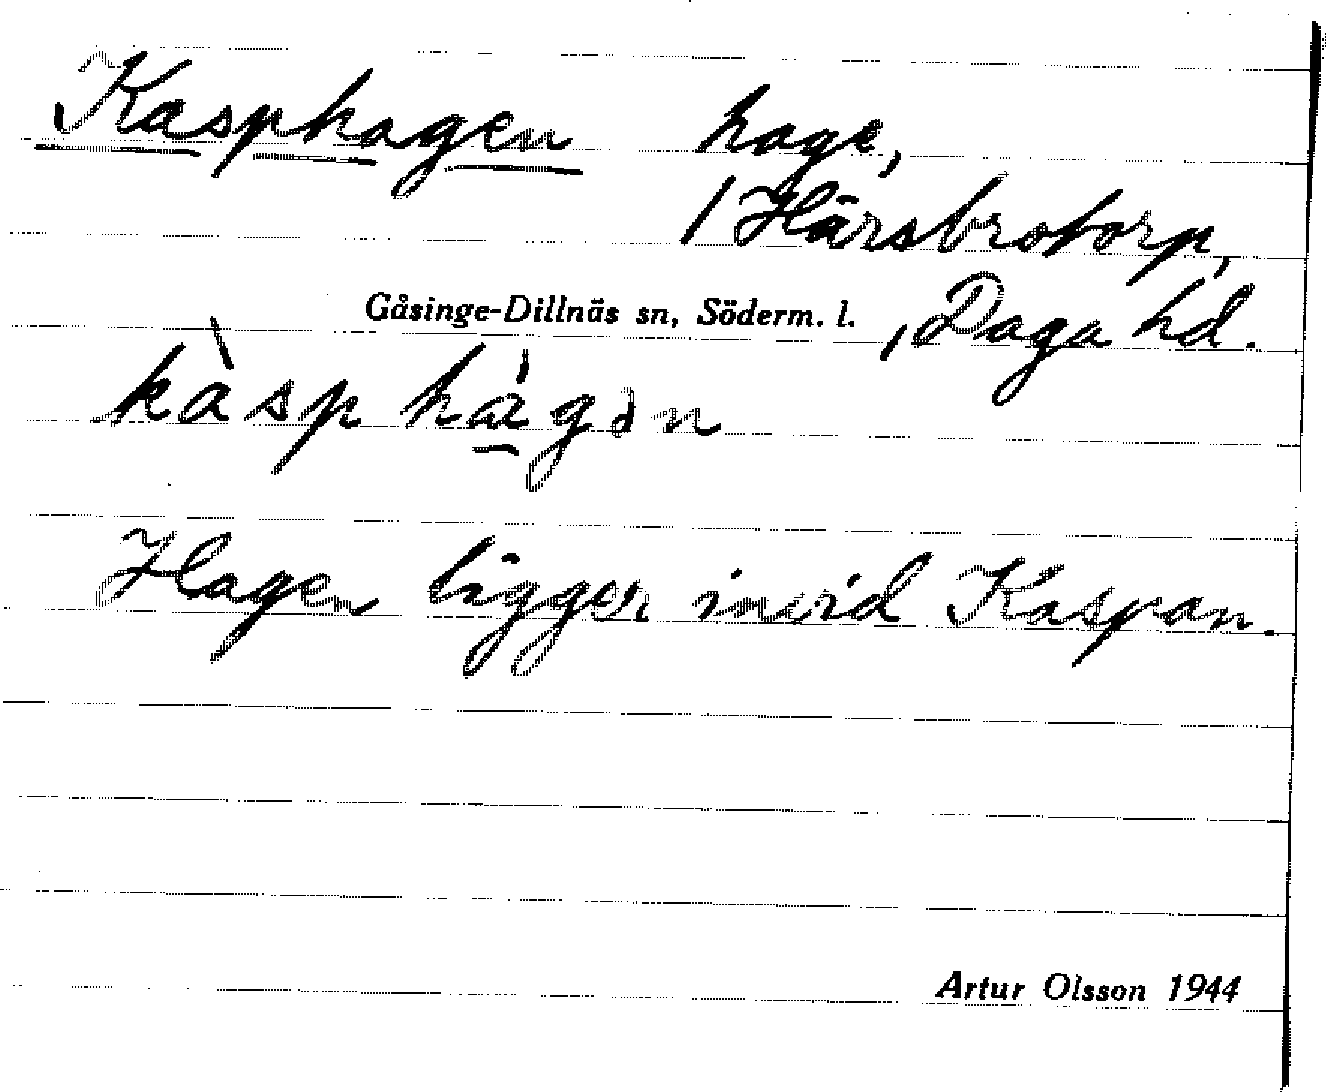 Kasphagen hage,
/Härsbrotorp,
Gåsinge-Dillnäs sn, Söderm. l. , Daga hd.
kàsphágən
Hagen ligger invid Kaspan.
Artur Olsson 1944